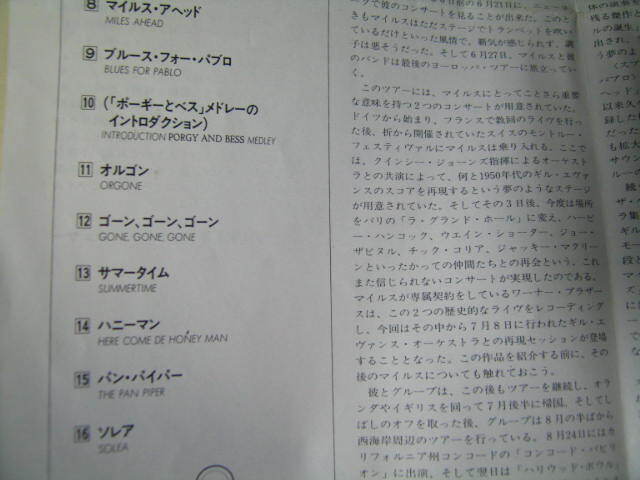 8 マイルス・アヘッド
MILES AHEAD
9 ブルース・フォー・パブロ
BLUES FOR PABLO
10 (「ポーギーとベス」メドレーの
イントロダクション)
INTRODUCTION PORGY AND BESS MEDLEY
11 オルゴン
ORGONE
12 ゴーン、ゴーン、ゴーン
GONE, GONE, GONE
13 サマータイム
SUMMERTIME
14 ハニーマン
HERE COME DE HONEY MAN
15 パン・パイパー
THE PAN PIPER
16 ソレア
SOLEA
で彼のコンサートを見ることが出来た。このと
きもマイルスはただステージでトランペットを吹い
ているだけといった風情で、覇気が感じられず、調
子は悪そうだった。そして6月27日、マイルスと彼
のバンドは最後のヨーロッパ・ツアーに旅立ってい
く。
このツアーには、マイルスにとってことさら重要
な意味を持つ2つのコンサートが用意されていた。
ドイツから始まり、フランスで数回のライヴを行っ
た後、折から開催されていたスイスのモントルー・
フェスティヴァルにマイルスは乗り入れる。ここで
は、クインシー・ジョーンズ指揮によるオーケスト
ラとの共演によって、何と1950年代のギル・エヴァ
ンスのスコアを再現するという夢のようなステージ
が用意されていた。そしてその3日後、今度は場所
をパリの「ラ・グランド・ホール」に変え、ハービ
ー・ハンコック、ウエイン・ショーター、ジョー・
ザビヌル、チック・コリア、ジャッキー・マクリー
ンといったかつての仲間たちとの再会という、これ
また信じられないコンサートが実現したのである。
マイルスが専属契約をしているワーナー・ブラザー
スは、この2つの歴史的なライヴをレコーディング
し、今回はその中から7月8日に行われたギル・エ
ヴァンス・オーケストラとの再現セッションが登場
することとなった。この作品を紹介する前に、その
後のマイルスについても触れておこう。
彼とグループは、この後もツアーを継続し、オラ
ンダやイギリスを回って7月後半に帰国、そしてし
ばしのオフを取った後、グループは8月の半ばから
西海岸周辺のツアーを行っている。8月24日にはカ
リフォルニア州コンコードの「コンコード・パビリ
オン」に出演、そして翌日は「ハリウッド・ボウル」